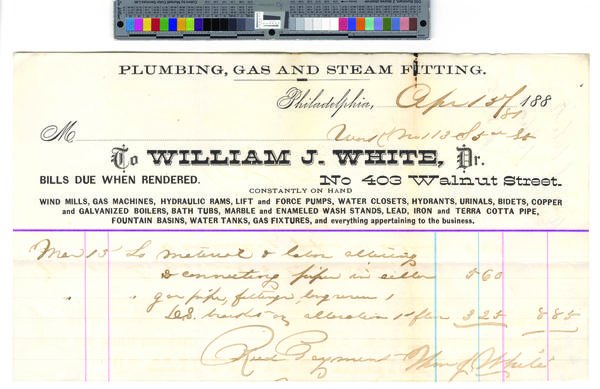 PLUMBING, GAS AND STEAM FITTING.
Philadelphia, Apr 188
M
To WILLIAM J. WHITE, Dr.
BILLS DUE WHEN RENDERED. No 403 Walnut Street.
CONSTANTLY ON HAND
WIND MILLS, GAS MACHINES, HYDRAULIC RAMS, LIFT and FORCE PUMPS, WATER CLOSETS, HYDRANTS, URINALS, BIDETS, COPPER
and GALVANIZED BOILERS, BATH TUBS, MARBLE and ENAMELED WASH STANDS, LEAD, IRON and TERRA COTTA PIPE,
FOUNTAIN BASINS, WATER TANKS, GAS FIXTURES, and everything appertaining to the business.
Mar 15 To material & labor altering
& connecting pipe in cellar 5 60
" " gas pipe, fittings
alteration 1st floor 3 25 8 85
Recd Payment Wm J. White